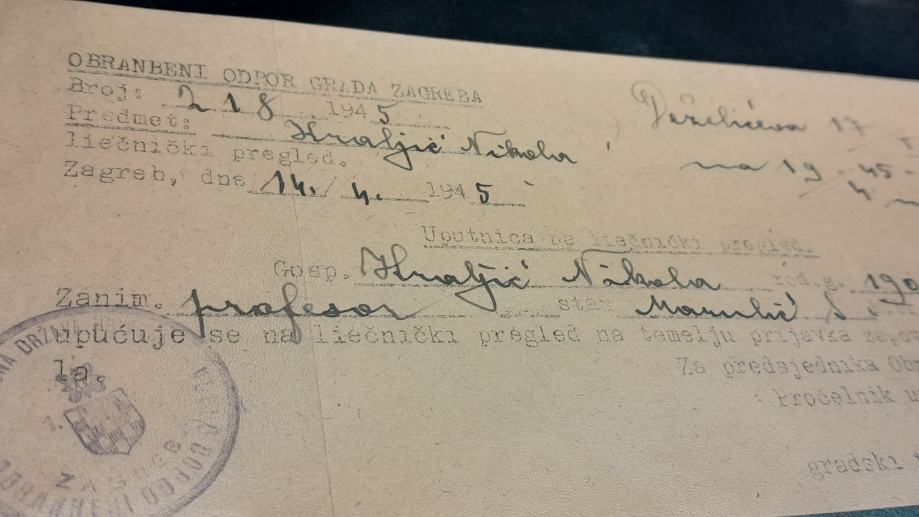 OBRANBENI ODPOR GRADA ZAGREBA
Broj: 218 1945
Predmet: Kraljić Nikola
liečnički pregled.
Zagreb, dne 14./4. 1945
Deželićeva 17
na 19
45
4
Uputnica na liečnički pregled.
Gosp. Kraljić Nikola rod.g. 190
Zanim. profesor stan
upućuje se na liečnički pregled na temelju prijavka
la.
Za predsjednika
Pročelnik
gradski
ZAGREB